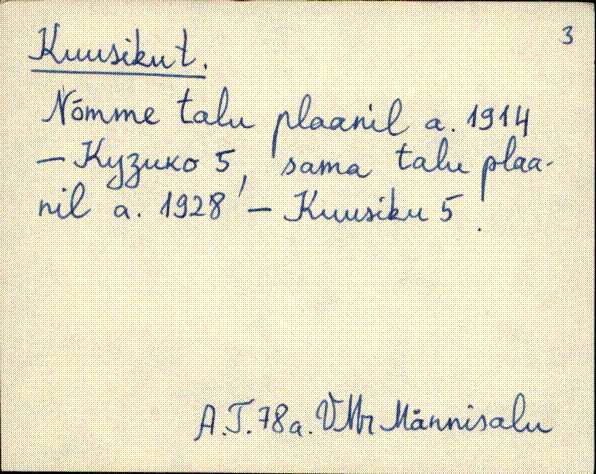 3
Kuusiku t.
Nõmme talu plaanil a. 1914
– Кузико 5, sama talu plaa-
nil a. 1928 – Kuusiku 5.
A.T. 78a. VMr Männisalu